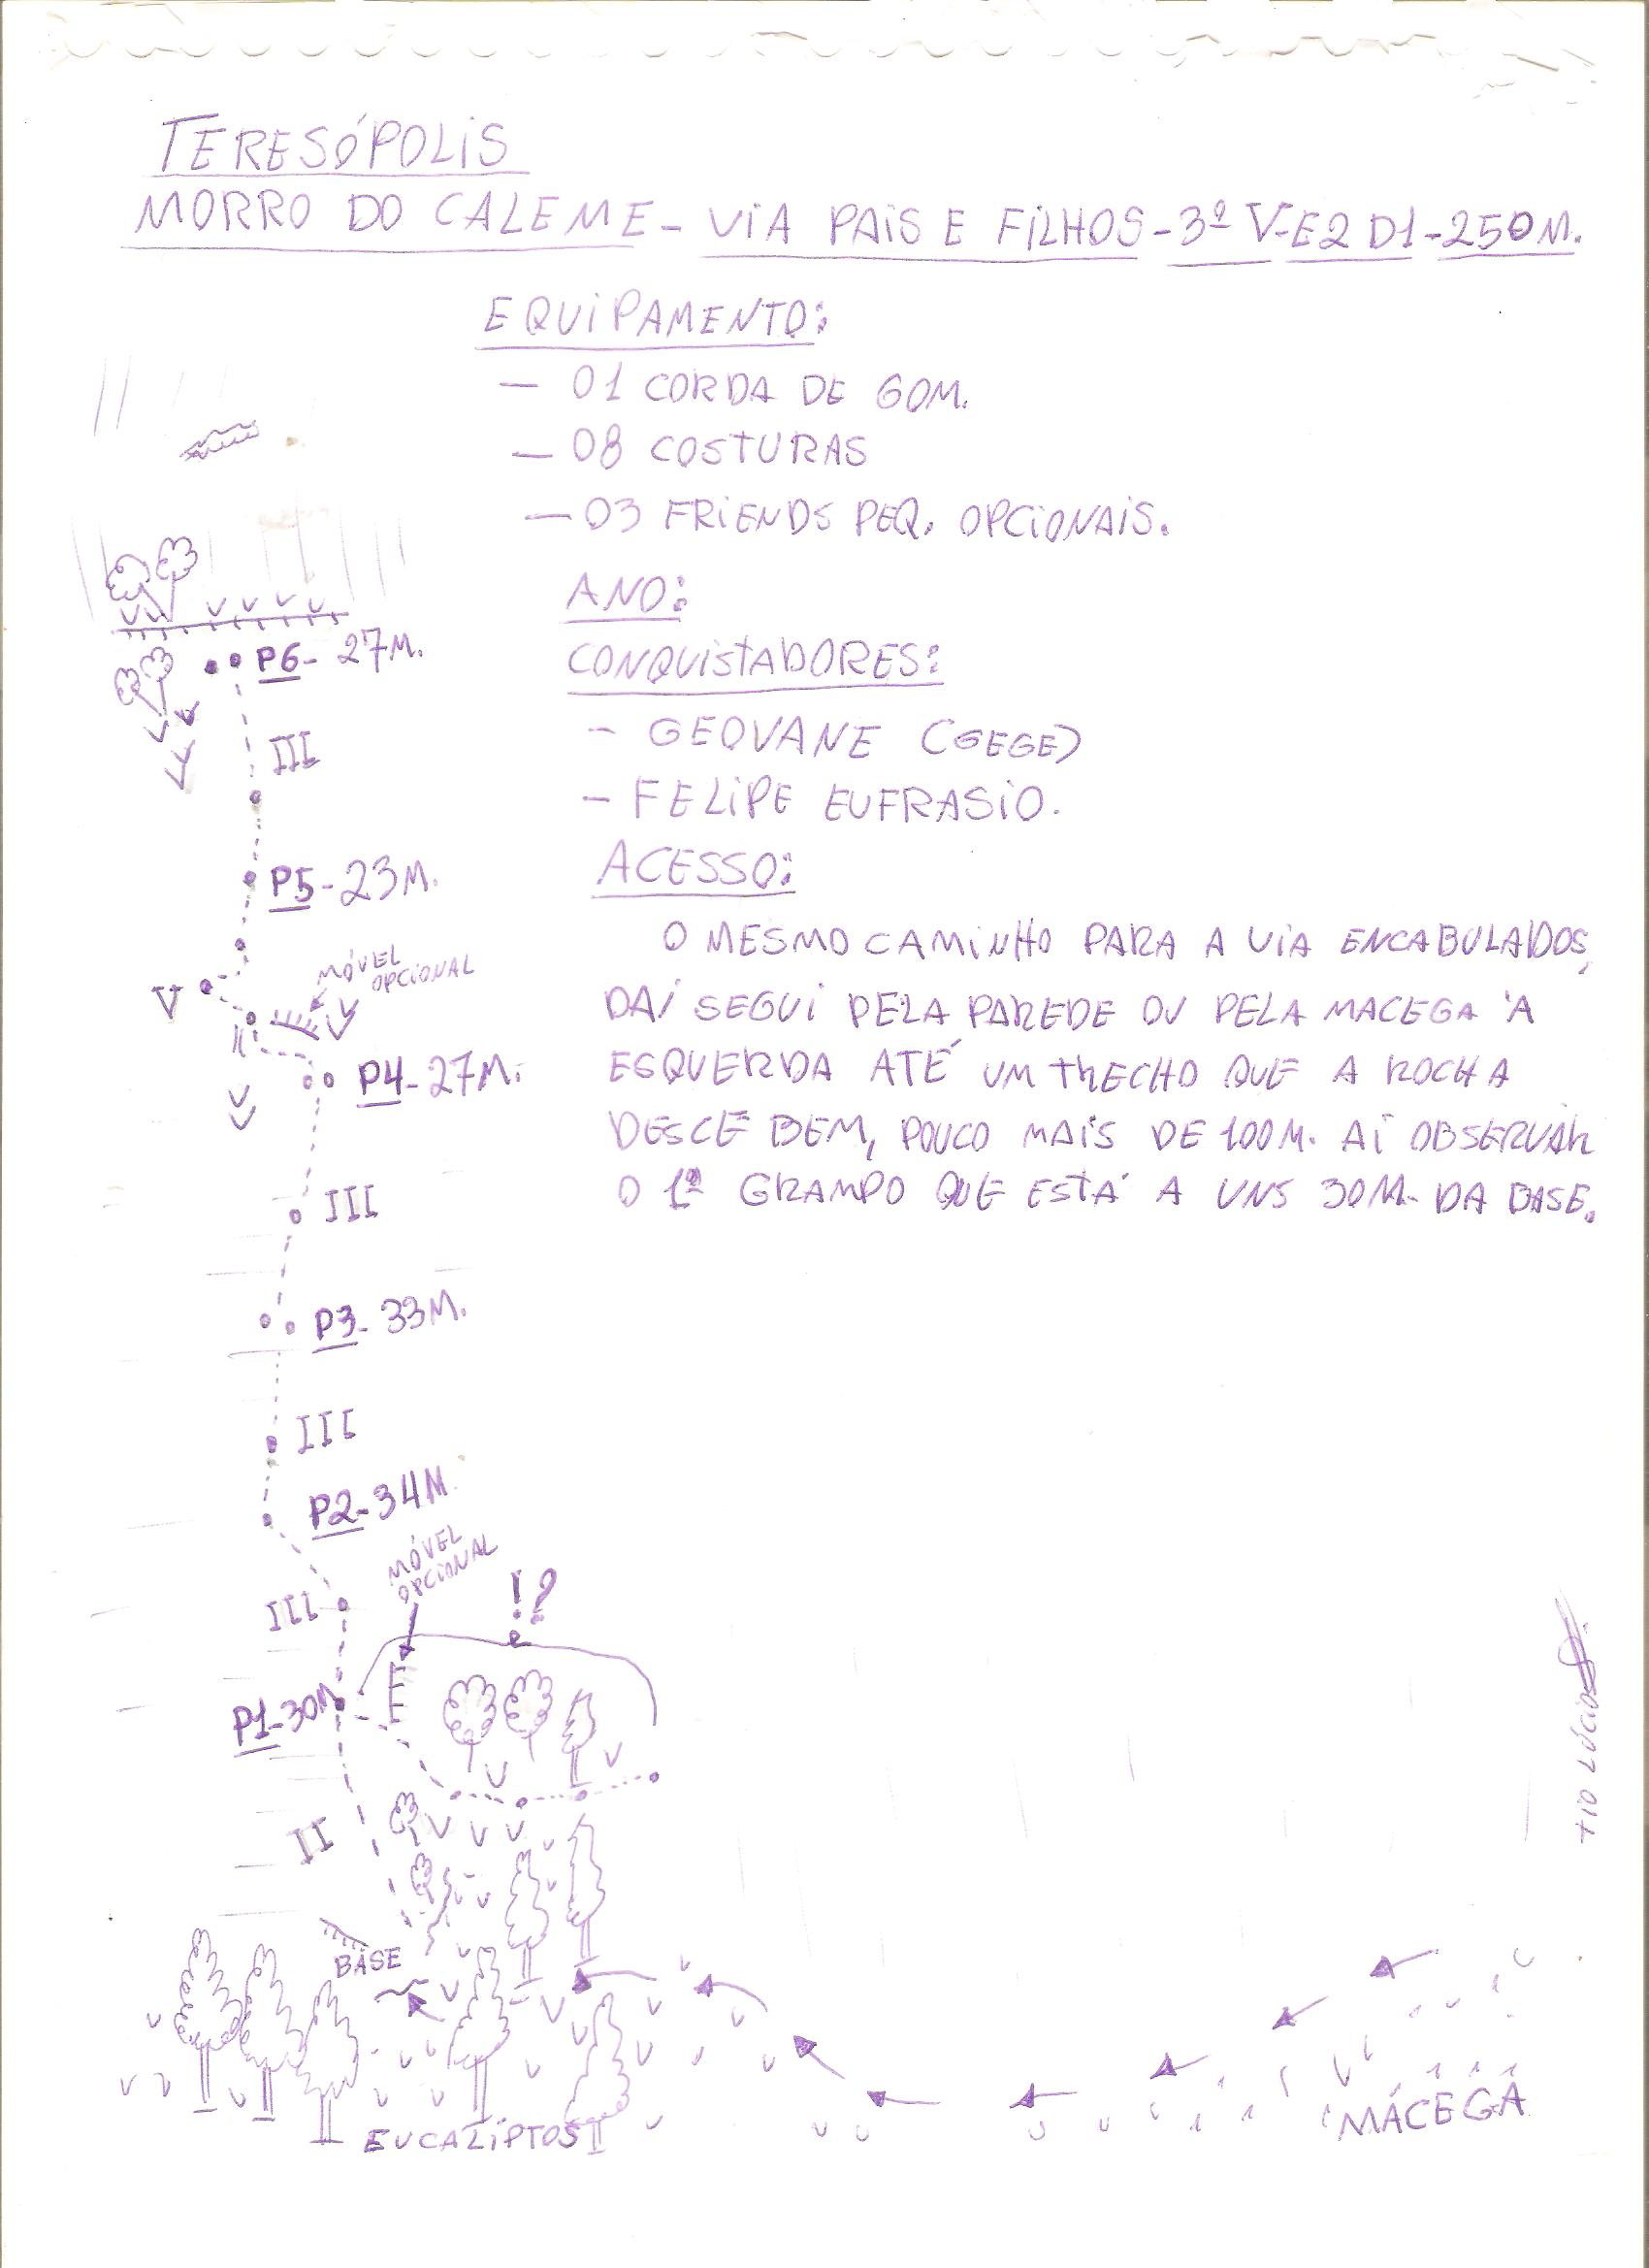 TERESÓPOLIS
MORRO DO CALEME - VIA PAIS E FILHOS - 3º V-E2 D1 - 250M.
EQUIPAMENTO:
- 01 CORDA DE 60M.
- 08 COSTURAS
- 03 FRIENDS PEQ. OPCIONAIS.
ANO:
CONQUISTADORES:
- GEOVANE (GEGE)
- FELIPE EUFRASIO.
ACESSO:
O MESMO CAMINHO PARA A VIA ENCABULADOS,
DAÍ SEGUI PELA PAREDE OU PELA MACEGA À
ESQUERDA ATÉ UM TRECHO QUE A ROCHA
DESCE BEM, POUCO MAIS DE 100M. AÍ OBSERVAR
O 1º GRAMPO QUE ESTÁ A UNS 30M. DA BASE.
P6 - 27M.
III
P5 - 23M.
MÓVEL
OPCIONAL
V
P4 - 27M.
III
P3 - 33M.
III
P2 - 34M.
MÓVEL
OPCIONAL
!?
III
P1 - 30M
II
BASE
EUCALÍPTOS
MACEGA
TIO LÚCIO